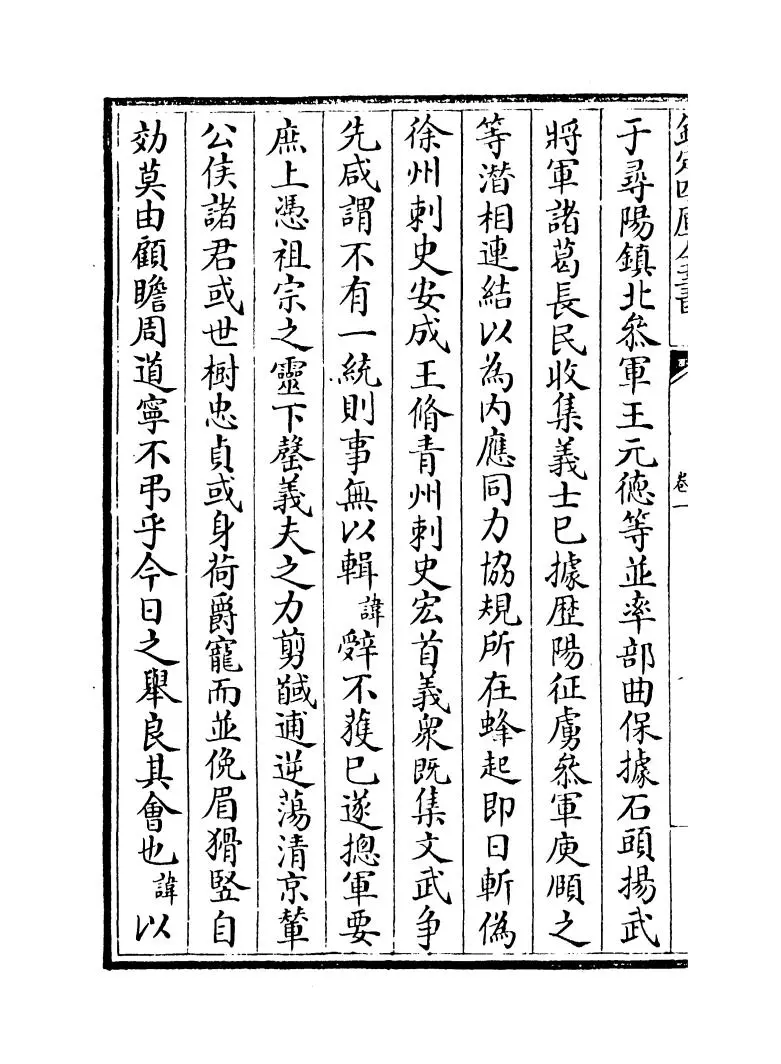 欽定四庫全書
卷一
于尋陽鎮北叅軍王元德等並率部曲保據石頭揚武
將軍諸葛長民收集義士已據歷陽征虜叅軍庾頤之
等潛相連結以為内應同力協規所在蜂起即日斬偽
徐州刺史安成王脩青州刺史宏首義衆既集文武争
先咸謂不有一統則事無以輯諱辭不獲已遂摠軍要
庶上憑祖宗之靈下罄義夫之力剪馘逋逆蕩清京輦
公侯諸君或世樹忠貞或身荷爵寵而並俛眉猾竪自
効莫由顧瞻周道寧不弔乎今日之舉良其會也諱以